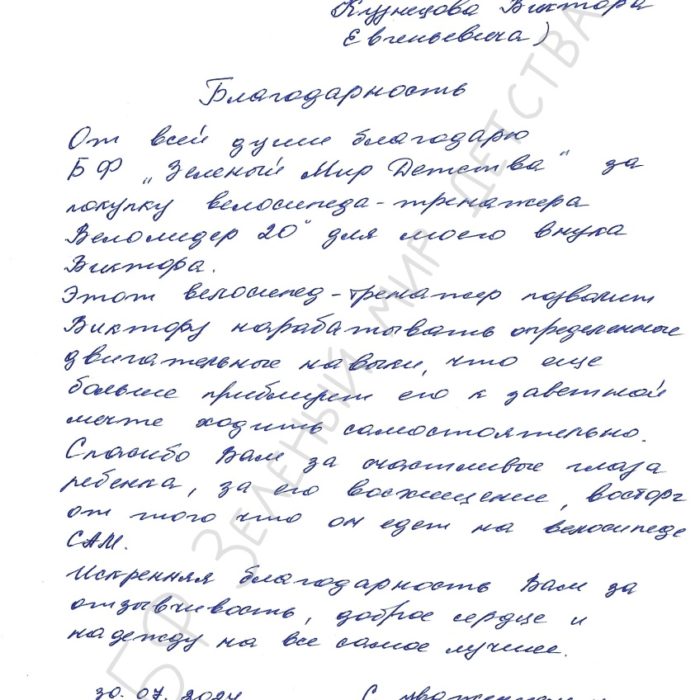 Кузнецова Виктора
Евгеньевича)
Благодарность
От всей души благодарю
БФ „Зеленый Мир Детства" за
покупку велосипеда-тренажера
Велолидер 20" для моего внука
Виктора.
Этот велосипед-тренажер позволит
Виктору нарабатывать определенные
двигательные навыки, что еще
больше приблизит его к заветной
мечте ходить самостоятельно.
Спасибо Вам за счастливые глаза
ребенка, за его восхищение, восторг
от того что он едет на велосипеде
САМ.
Искренняя благодарность Вам за
отзывчивость, доброе сердце и
надежду на все самое лучшее.
30.07.2024 С уважением
БФ ЗЕЛЕНЫЙ МИР ДЕТСТВА